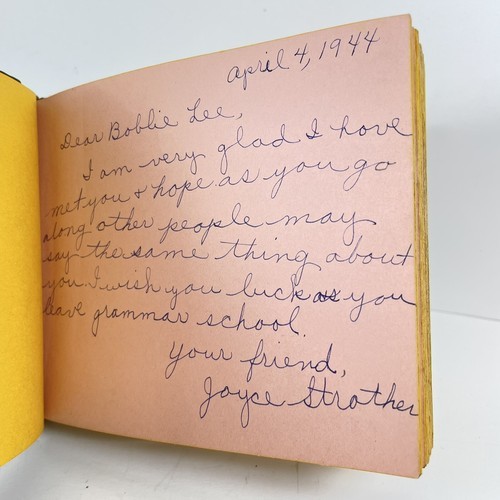 April 4, 1944
Dear Bobbie Lee,
I am very glad I have
met you & hope as you go
along other people may
say the same thing about
you. I wish you luck as you
leave grammar school.
Your friend,
Joyce Strother